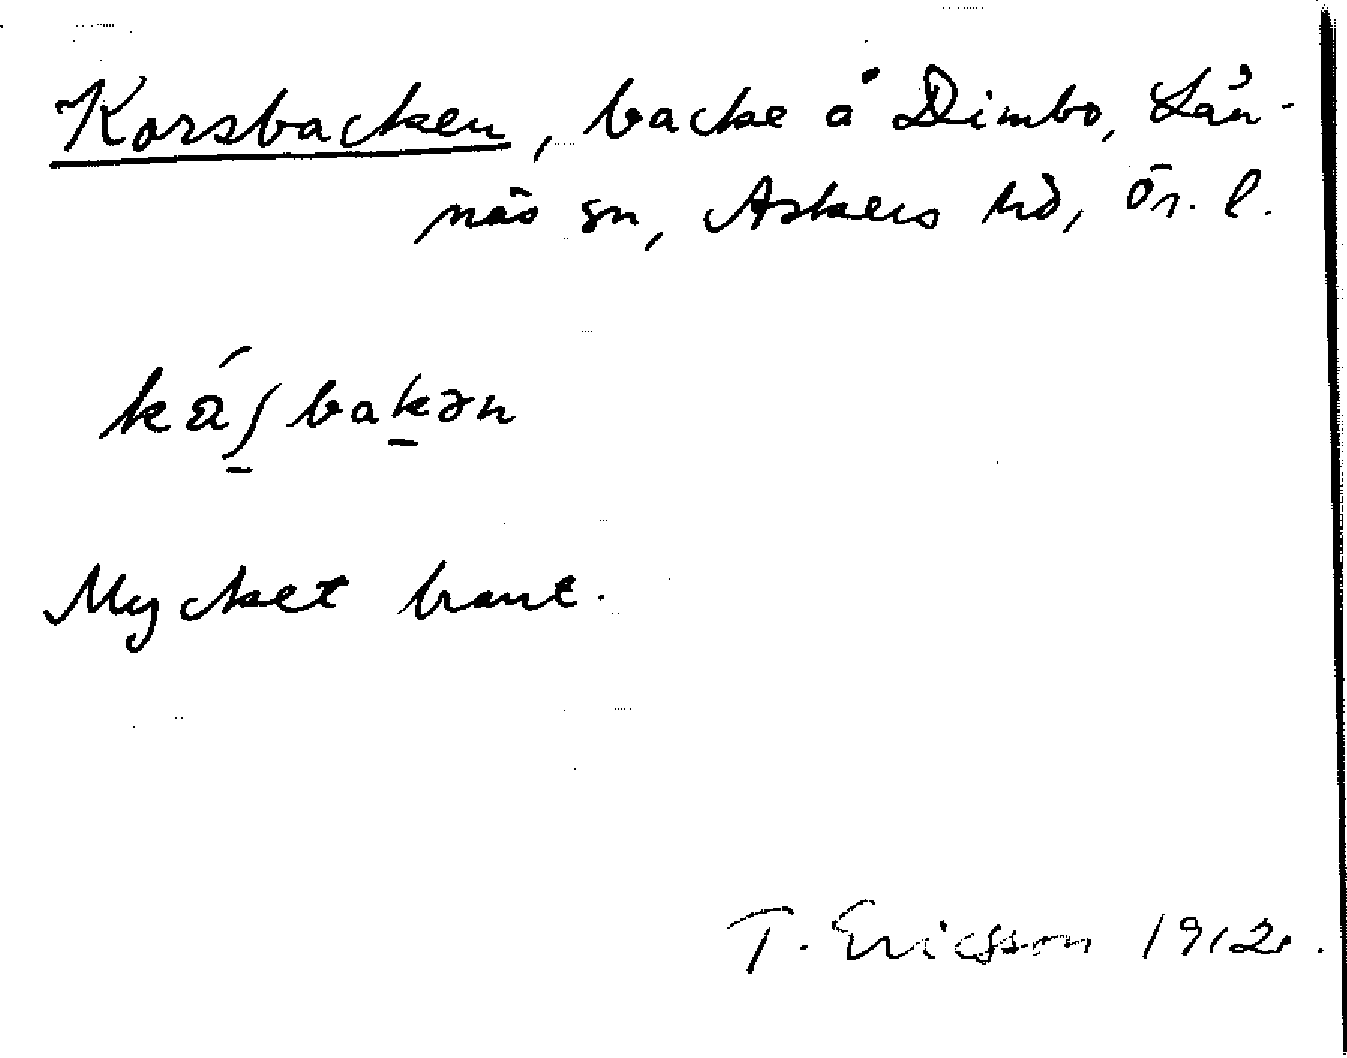 Korsbacken, backe å Dimbo, Län-
näs sn, Askers hd, Ör. l.
káʃbakən
Mycket brant.
T. Ericsson 1912.